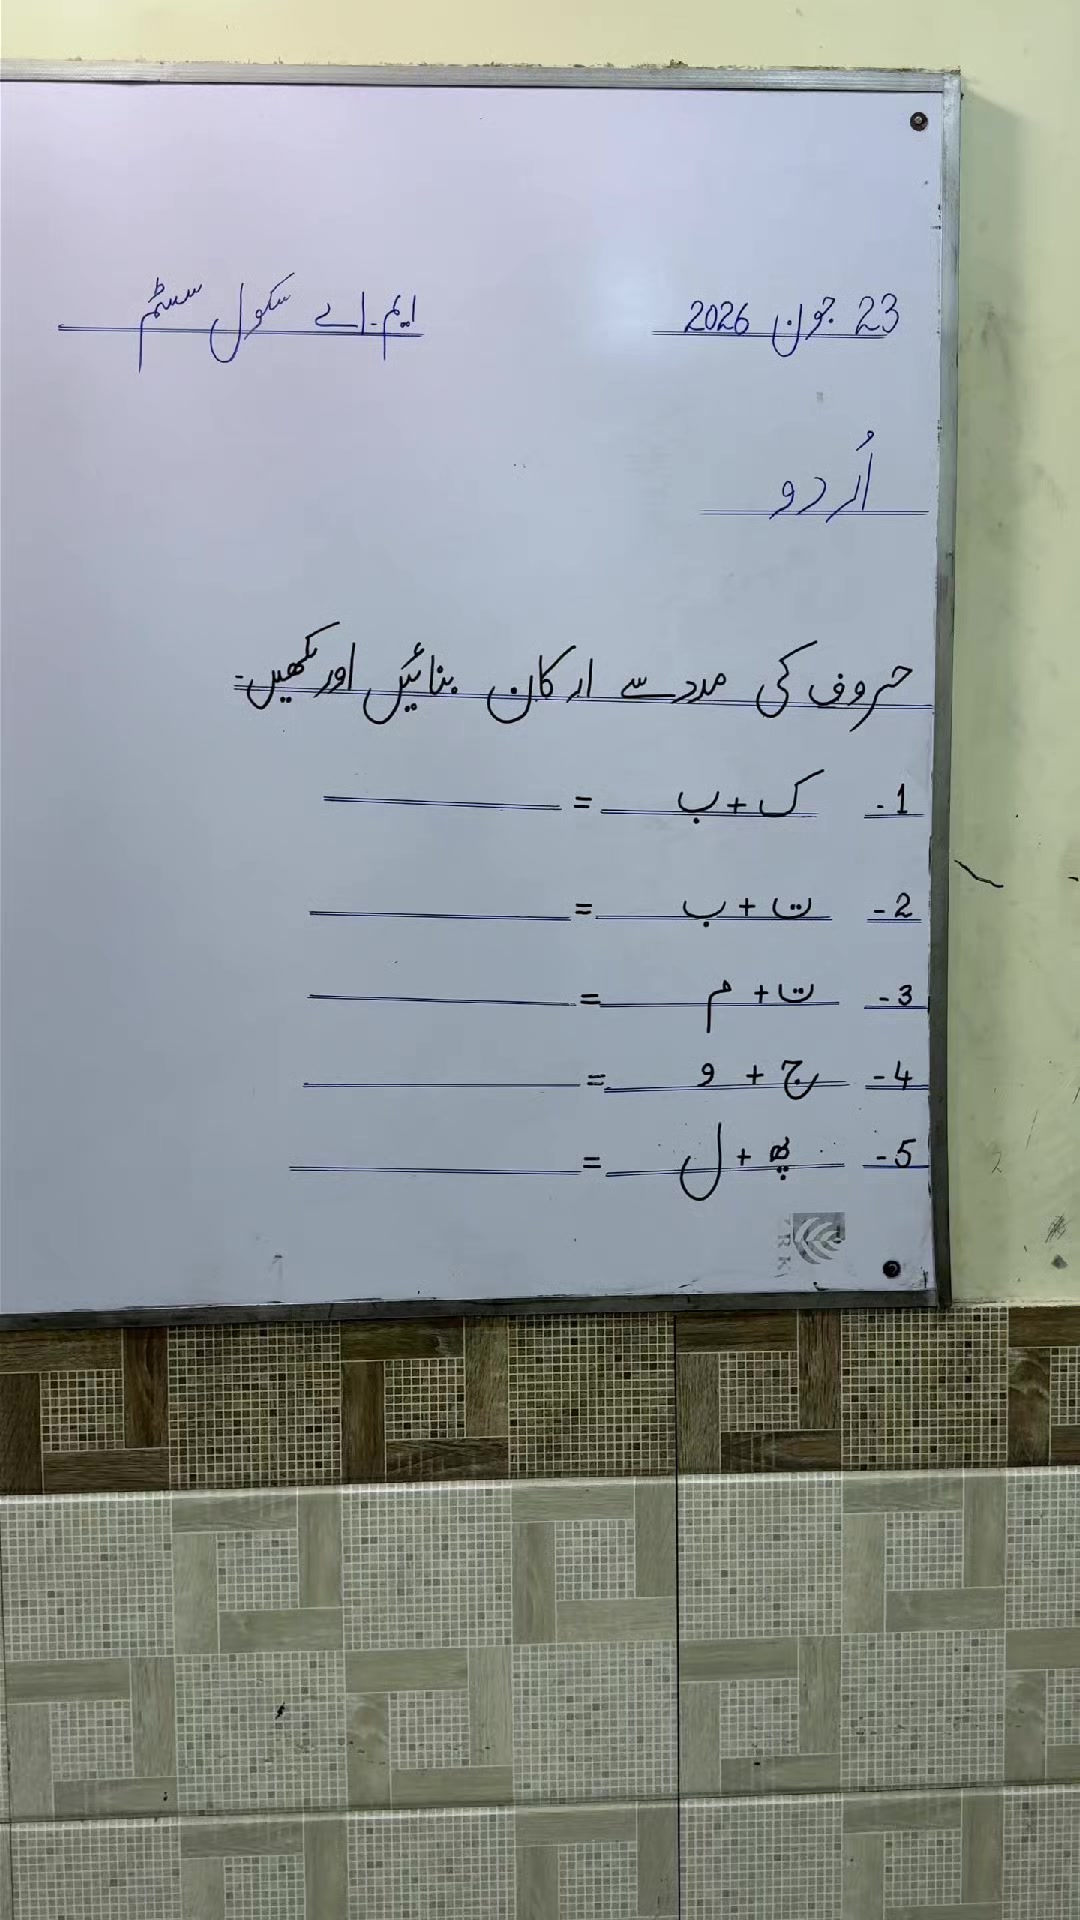 23 جون 2026 ایم۔اے سکول سسٹم
اُردو
حروف کی مدد سے ارکان بنائیں اور لکھیں۔
1- ک + ب = ______
2- ت + ب = ______
3- ت + م = ______
4- ج + و = ______
5- پھ + ل = ______